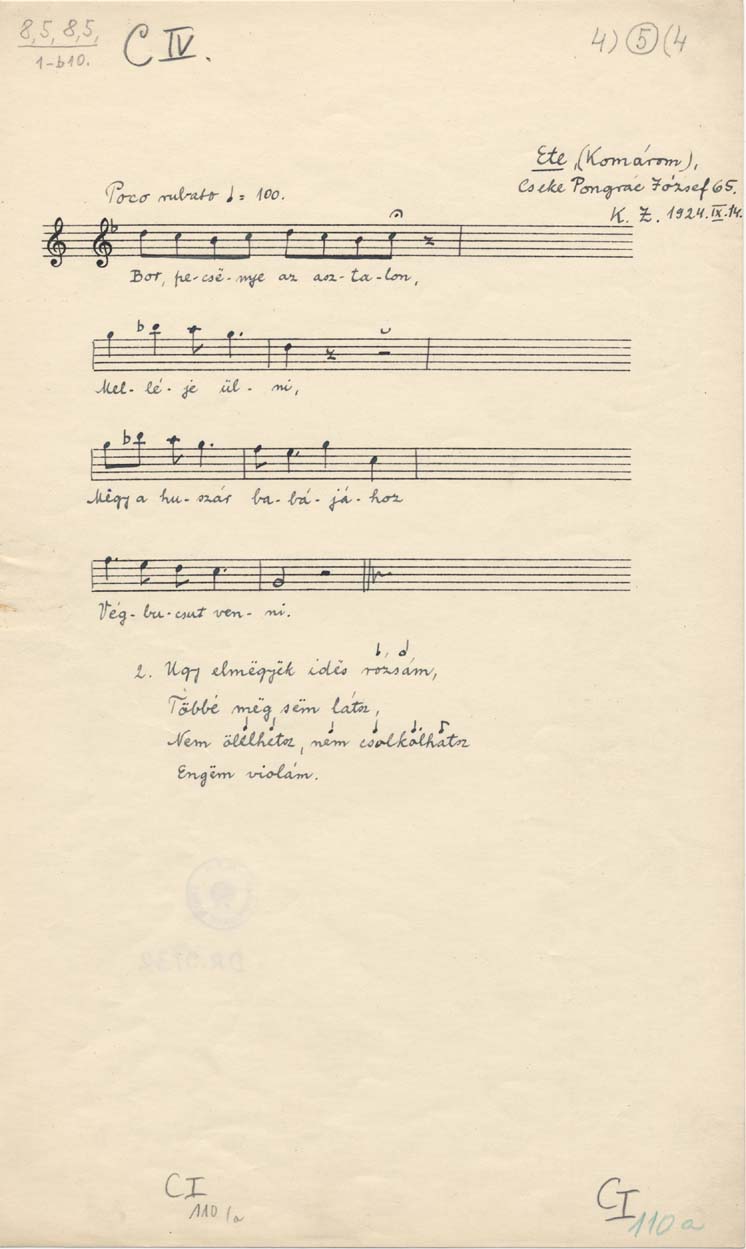 8,5, 8,5,
1-b10.
C IV.
4) 5 (4
Ete, (Komárom),
Cseke Pongrác József 65.
K. Z. 1924. IX. 14.
Poco rubato ♩= 100.
Bor, pe-csë-nye az asz-ta-lon,
Mel-lé-je ül-ni,
Mêgy a hu-szár ba-bá-já-hoz
Vég-bu-csut ven-ni.
2. Ugy elmëgyëk idës rozsám,
Többé mëg sëm látsz,
Nem ölelhetsz, nem csolkolhatsz
Engëm violám.
CI
110/a
CI
110 a